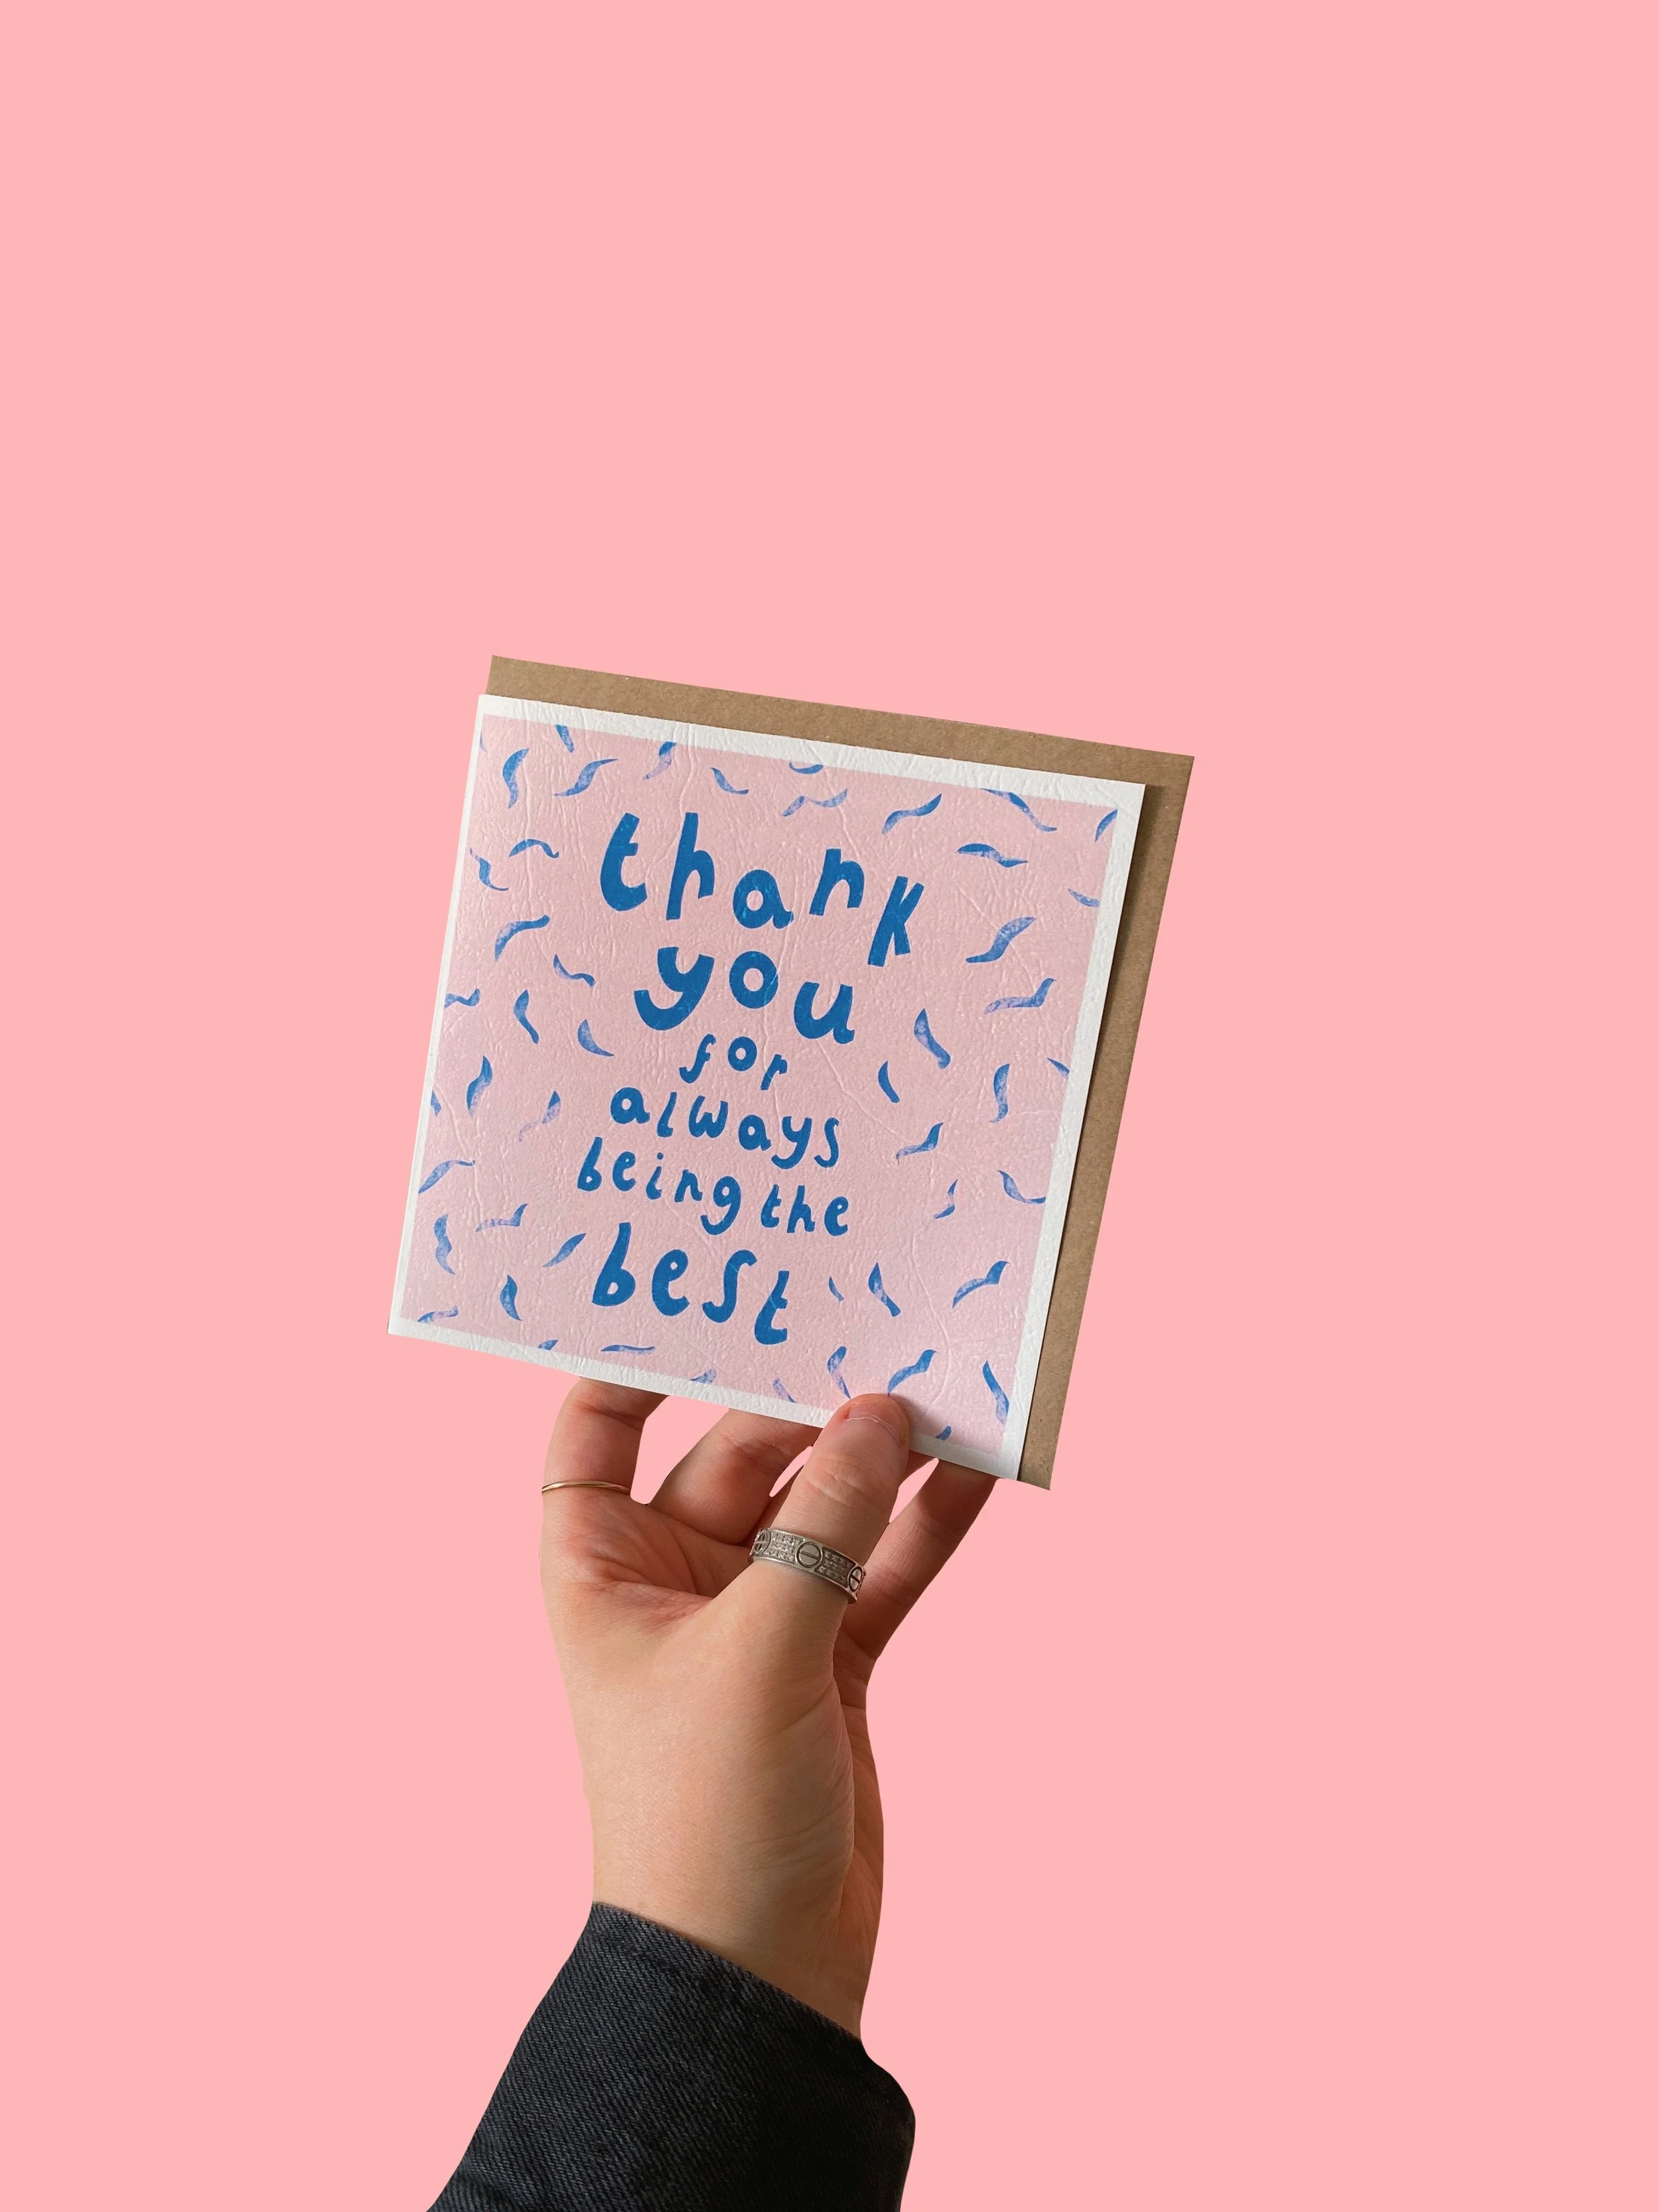 thank
you
for
always
being the
best